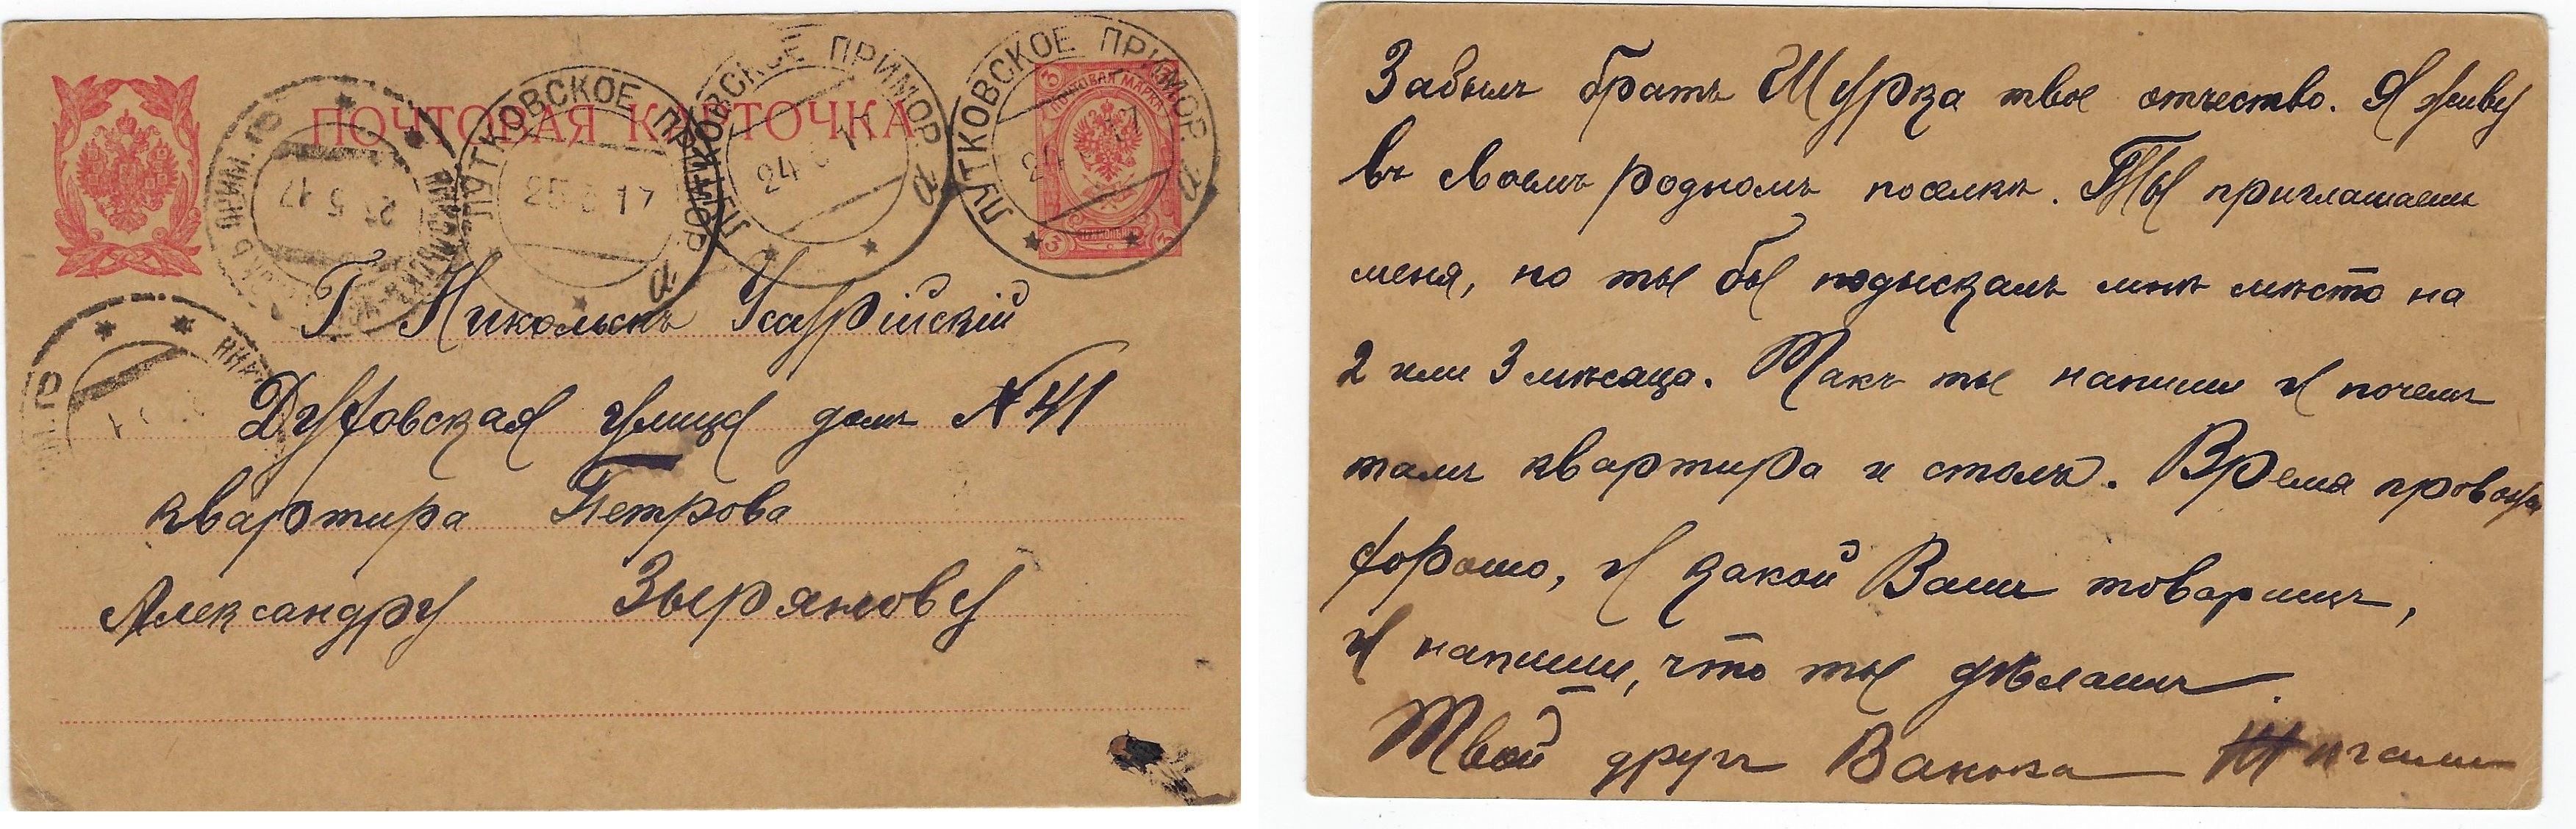 ПОЧТОВАЯ КАРТОЧКА
ПОЧТОВАЯ МАРКА
3
3
3
3
ЛУТКОВСКОЕ ПРИМОР. а
24
ЛУТКОВСКОЕ ПРИМОР. а
24 5 17
ЛУТКОВСКОЕ ПРИМОР. а
25 5 17
ПРИМ.
5 17
Г Никольскъ Уссурійскій
улица домъ № 41
квартира Петрова
Александру Зырянову
Забылъ братъ Шурка твое отчество. Я живу
въ своемъ родномъ поселкѣ. Ты приглашаешь
меня, но ты бы подыскалъ мнѣ мѣсто на
2 или 3 мѣсяца. Такъ ты напиши и почемъ
тамъ квартира и столъ. Время
хорошо, и какой Вашъ товарищъ,
и напиши, что ты дѣлаешь.
Твой другъ Ванька